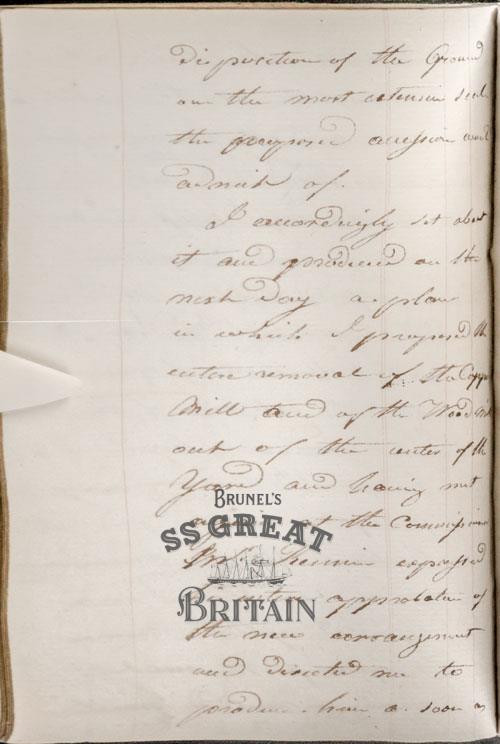 Disposition of the Ground
on the most extensive scale
the proposed accession would
admit of.
I accordingly set about
it and produced on the
next Day a plan
in which I proposed the
entire removal of the Copper
Mill and of the Wood Mill
out of the center of the
Yard and having met
again at the Commissioner
Mr. Rennie expressed
approbation of
the new arrangement
and directed me to
produce him a. soon as
BRUNEL'S
SS GREAT
BRITAIN